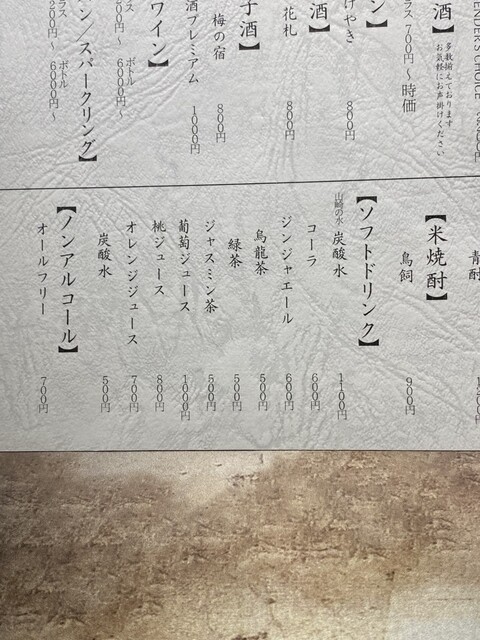 酒】
多数揃えております
お気軽にお声掛けください
700円～時価
けやき 800円
酒】
花札 800円
子酒】
梅の宿 800円
酒プレミアム 1000円
ワイン】
ボトル
6000円～
ン／スパークリング】
ボトル
6000円～
【米焼酎】
鳥飼 900円
【ソフトドリンク】
山崎の水 炭酸水 1100円
コーラ 600円
ジンジャエール 600円
烏龍茶 500円
緑茶 500円
ジャスミン茶 500円
葡萄ジュース 1000円
桃ジュース 800円
オレンジジュース 700円
炭酸水 500円
【ノンアルコール】
オールフリー 700円